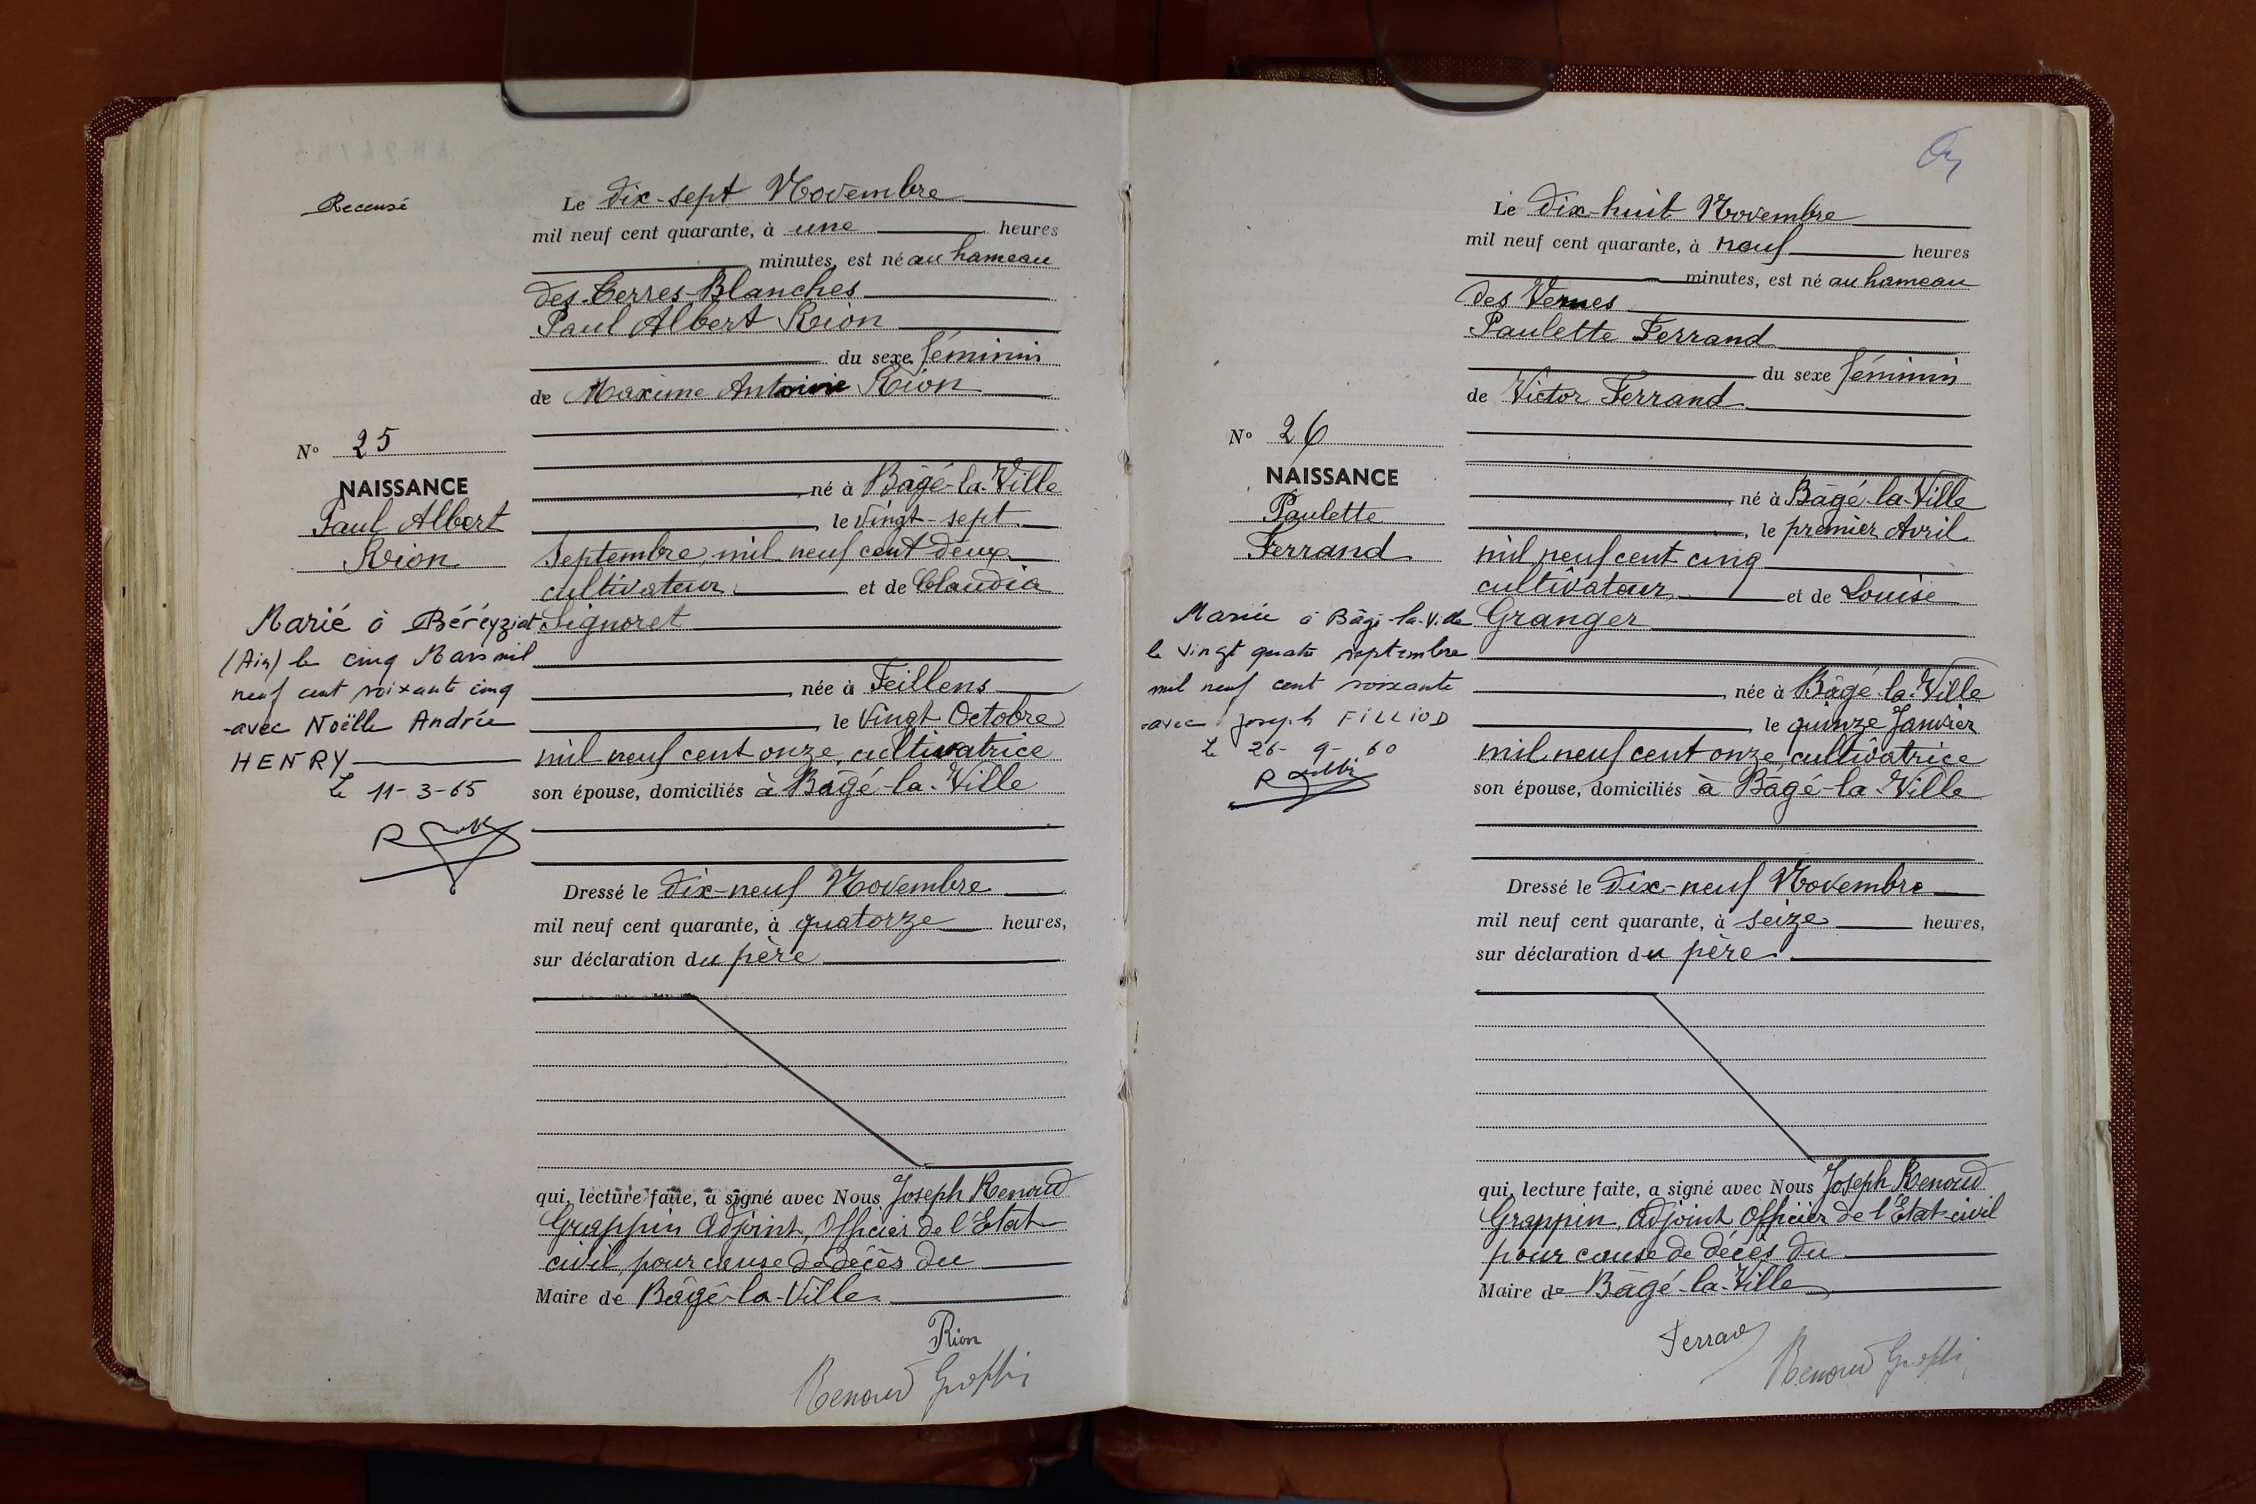 Recensé
Le dix-sept Novembre
mil neuf cent quarante, à une heures
minutes, est né au hameau
des Terres-Blanches
Paul Albert Rion
du sexe féminin
de Maxime Antoine Rion
N° 25
NAISSANCE
Paul Albert
Rion
né à Bâgé-la-Ville
, le vingt-sept
Septembre, mil neuf cent deux
cultivateur et de Claudia
Signoret
née à Feillens
, le vingt Octobre
mil neuf cent onze, cultivatrice
son épouse, domiciliés à Bâgé-la-Ville
Marié à Béréyziat
(Ain) le cinq Mars mil
neuf cent soixante cinq
avec Noëlle Andrée
HENRY
Le 11-3-65
Dressé le dix-neuf Novembre
mil neuf cent quarante, à quatorze heures,
sur déclaration du père
qui, lecture faite, a signé avec Nous Joseph Renoud
Grappin Adjoint, Officier de l'Etat
civil, pour cause de décès du
Maire de Bâgé-la-Ville
Rion
Renoud Grappin
Le dix-huit Novembre
mil neuf cent quarante, à neuf heures
minutes, est né au hameau
des Vernes
Paulette Ferrand
du sexe féminin
de Victor Ferrand
N° 26
NAISSANCE
Paulette
Ferrand
né à Bâgé-la-Ville
, le premier Avril
mil neuf cent cinq
cultivateur et de Louise
Granger
née à Bâgé-la-Ville
, le quinze Janvier
mil neuf cent onze, cultivatrice
son épouse, domiciliés à Bâgé-la-Ville
Mariée à Bâgé-la-Ville
le vingt quatre septembre
mil neuf cent soixante
avec Joseph FILLIOD
Le 26-9-60
Dressé le dix-neuf Novembre
mil neuf cent quarante, à seize heures,
sur déclaration du père
qui, lecture faite, a signé avec Nous Joseph Renoud
Grappin, Adjoint Officier de l'Etat-civil
pour cause de décès du
Maire de Bâgé-la-Ville
Ferrand
Renoud Grappin